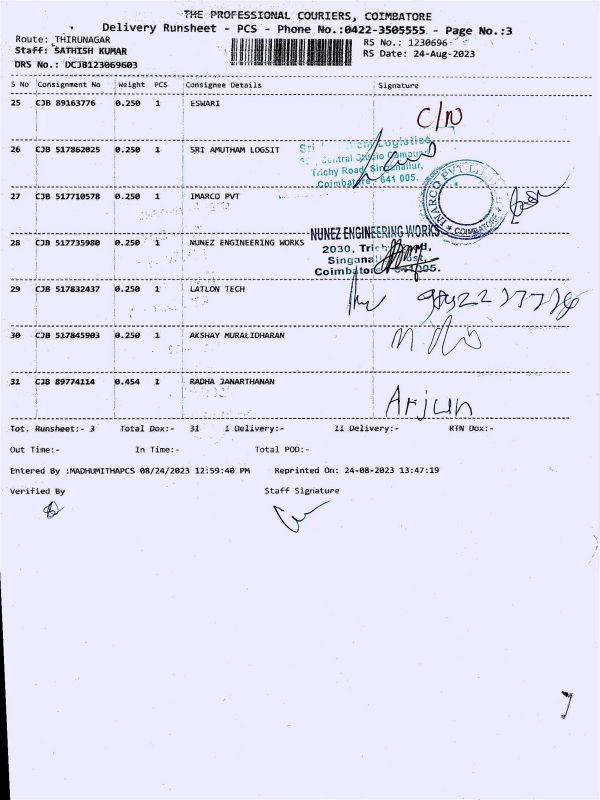 THE PROFESSIONAL COURIERS, COIMBATORE
Delivery Runsheet - PCS - Phone No.:0422-3505555 - Page No.:3
Route: THIRUNAGAR RS No.: 1230696
Staff: SATHISH KUMAR RS Date: 24-Aug-2023
DRS No.: DCJB123069603
S No Consignment No Weight PCS Consignee Details Signature
25 CJB 89163776 0.250 1 ESWARI C/N
26 CJB 517862025 0.250 1 SRI AMUTHAM LOGSIT
Logistics
Trichy Road, Singanallur,
Coimbatore - 641 005.
27 CJB 517710578 0.250 1 IMARCO PVT
IMARCO PVT
COIMBATORE
28 CJB 517735980 0.250 1 NUNEZ ENGINEERING WORKS
NUNEZ ENGINEERING WORKS
2030,
29 CJB 517832437 0.250 1 LATLON TECH
30 CJB 517845903 0.250 1 AKSHAY MURALIDHARAN
31 CJB 89774114 0.454 1 RADHA JANARTHANAN Arjun
Tot. Runsheet:- 3 Total Dox:- 31 I Delivery:- II Delivery:- RTN Dox:-
Out Time:- In Time:- Total POD:-
Entered By :MADHUMITHAPCS 08/24/2023 12:59:40 PM Reprinted On: 24-08-2023 13:47:19
Verified By Staff Signature